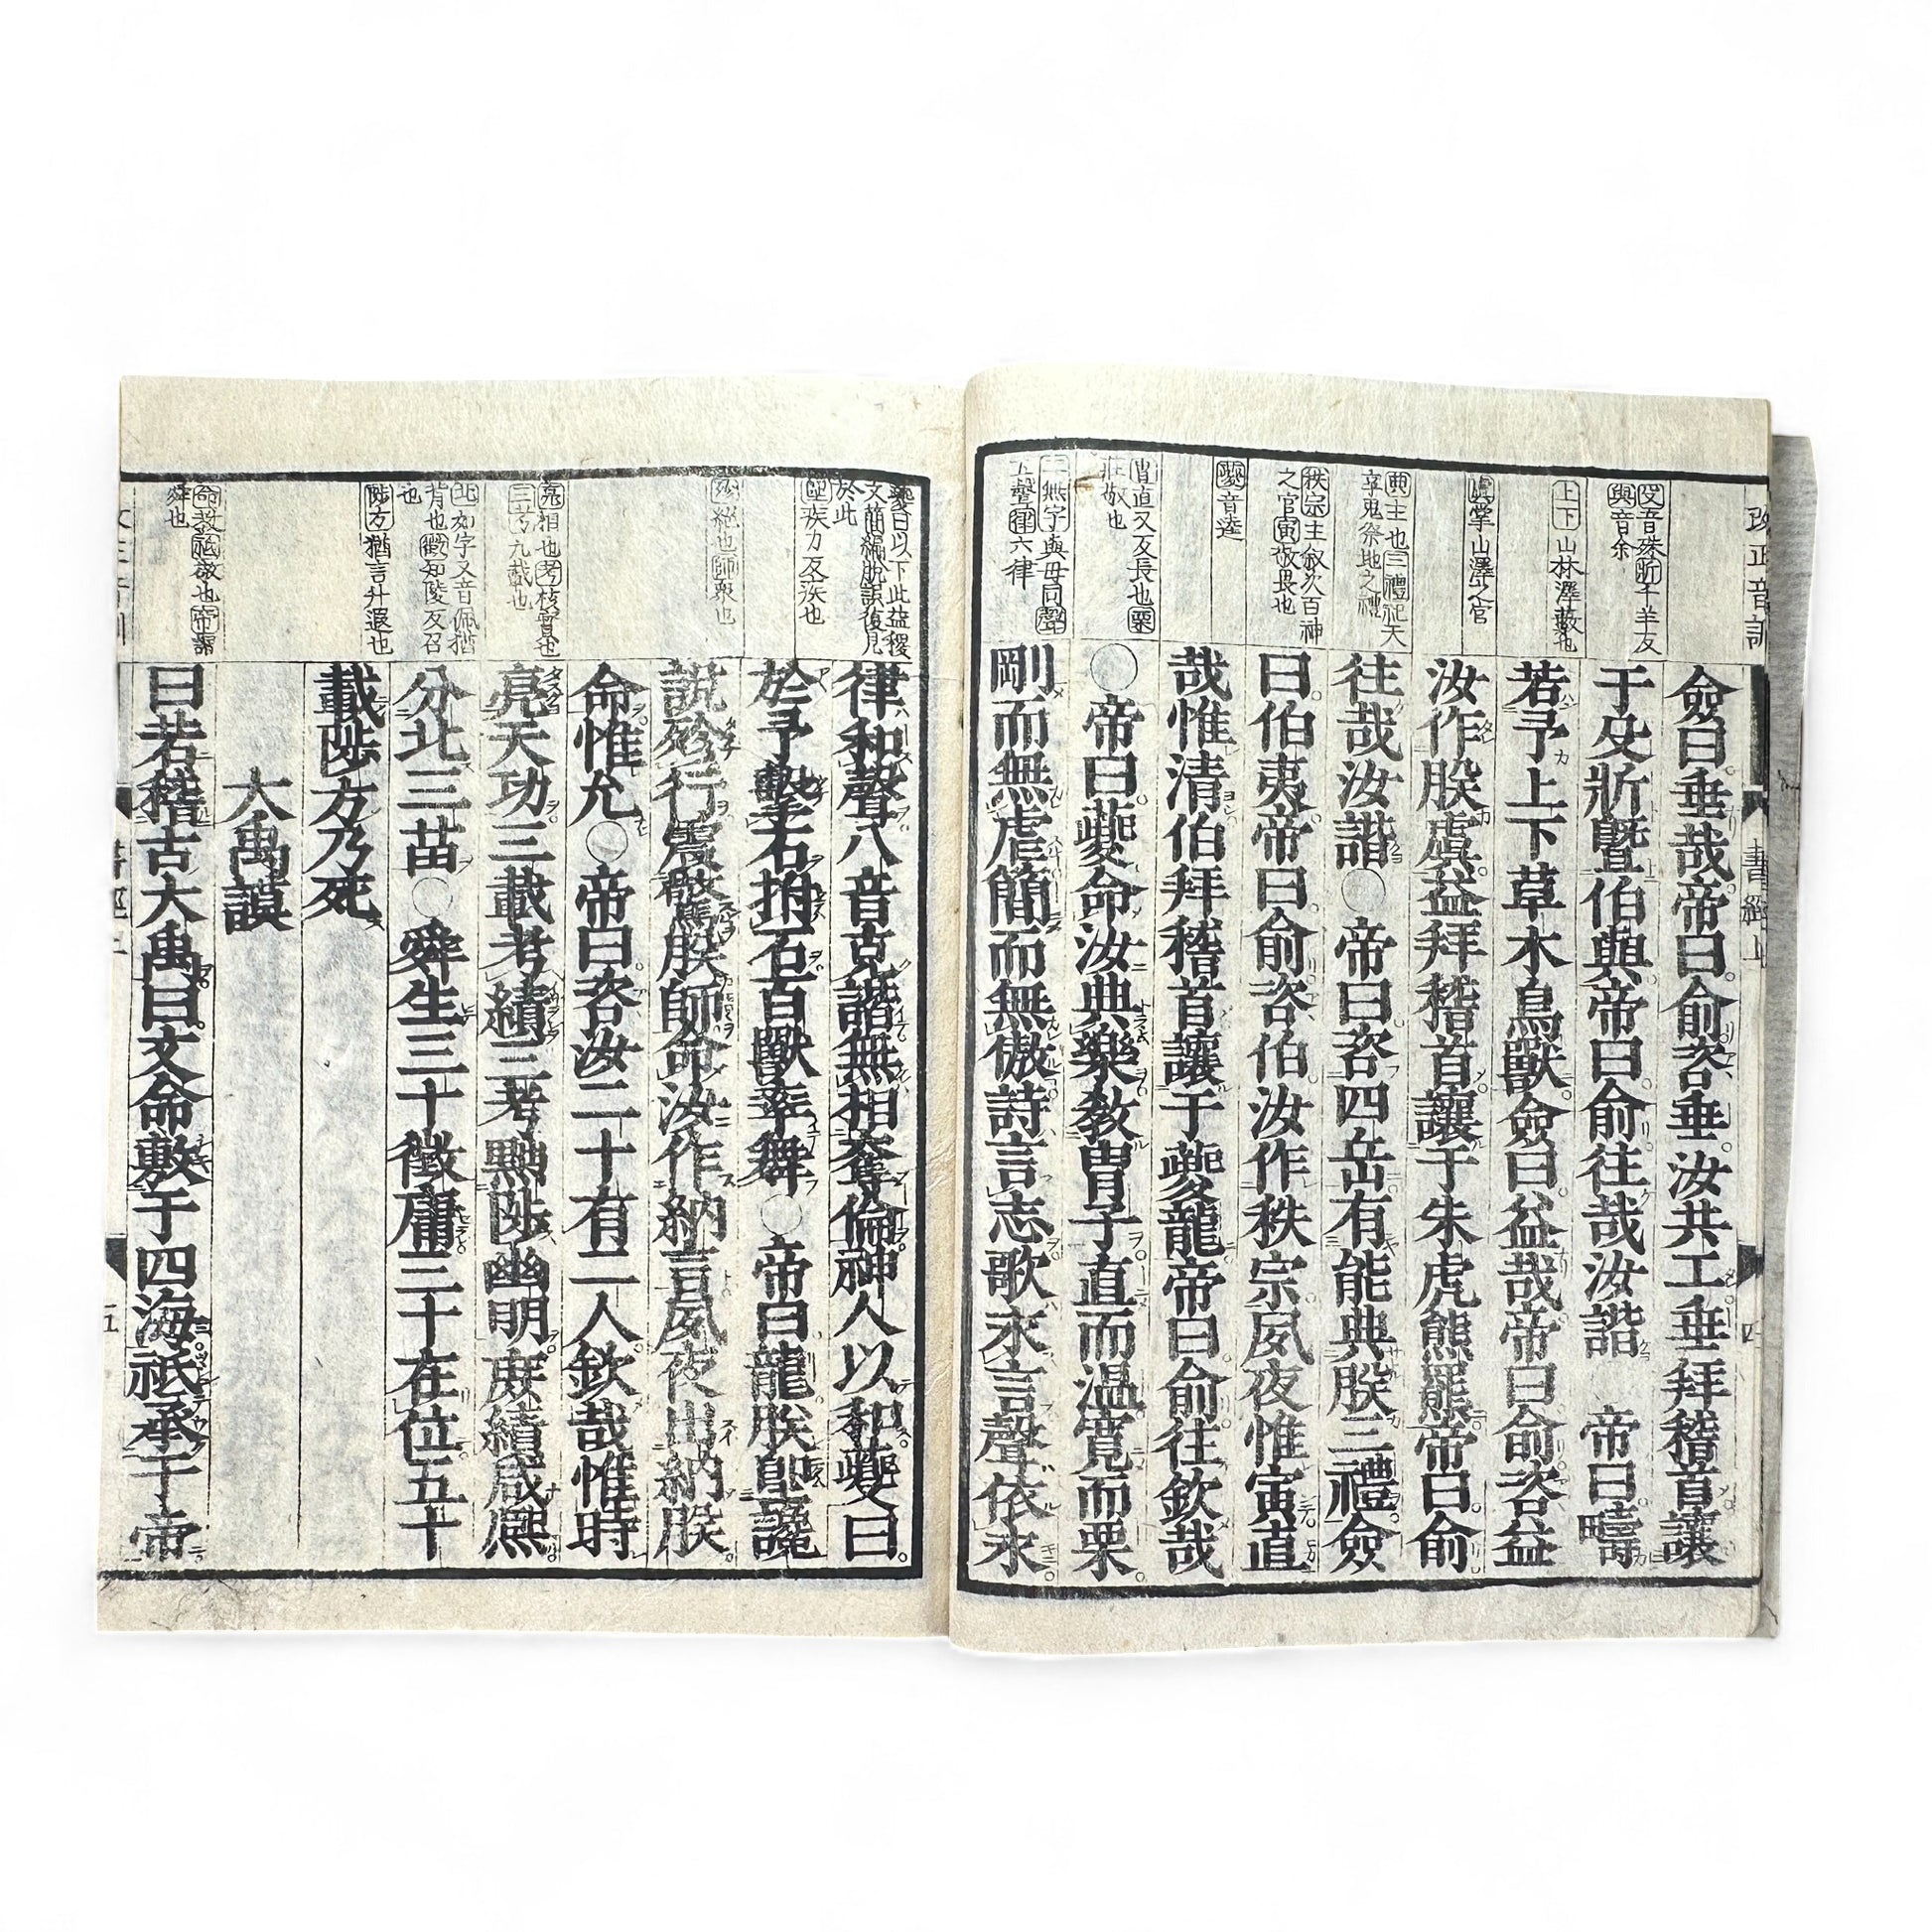 改正音訓
書經上
四
殳音殊斨千羊反
與音余
上下山林澤藪也
虞掌山澤之官
典主也三禮祀天
享鬼祭地之禮
秩宗主敘次百神
之官寅敬畏也
夔音逵
冑直又反長也栗
莊敬也
二無字與毋同聲
五聲律六律
僉曰垂哉帝曰俞咨垂汝共工垂拜稽首讓
于殳斨曁伯與帝曰俞往哉汝諧 帝曰疇
若予上下草木鳥獸僉曰益哉帝曰俞咨益
汝作朕虞益拜稽首讓于朱虎熊羆帝曰俞
往哉汝諧○帝曰咨四岳有能典朕三禮僉
曰伯夷帝曰俞咨伯汝作秩宗夙夜惟寅直
哉惟清伯拜稽首讓于夔龍帝曰俞往欽哉
○帝曰夔命汝典樂敎冑子直而溫寬而栗
剛而無虐簡而無傲詩言志歌永言聲依永
夔曰以下此益稷
文簡編脫誤復見
於此
堲疾力反疾也
殄絕也師衆也
亮相也考核實也
三考九載也
北如字又音佩猶
背也徵知陵反召
也
陟方猶言升遐也
命敎祗敬也帝謂
舜也
律和聲八音克諧無相奪倫神人以和夔曰
於予擊石拊石百獸率舞○帝曰龍朕堲讒
說殄行震驚朕師命汝作納言夙夜出納朕
命惟允○帝曰咨汝二十有二人欽哉惟時
亮天功三載考績三考黜陟幽明庶績咸熙
分北三苗○舜生三十徵庸三十在位五十
載陟方乃死
大禹謨
曰若稽古大禹曰文命敷于四海祗承于帝
五